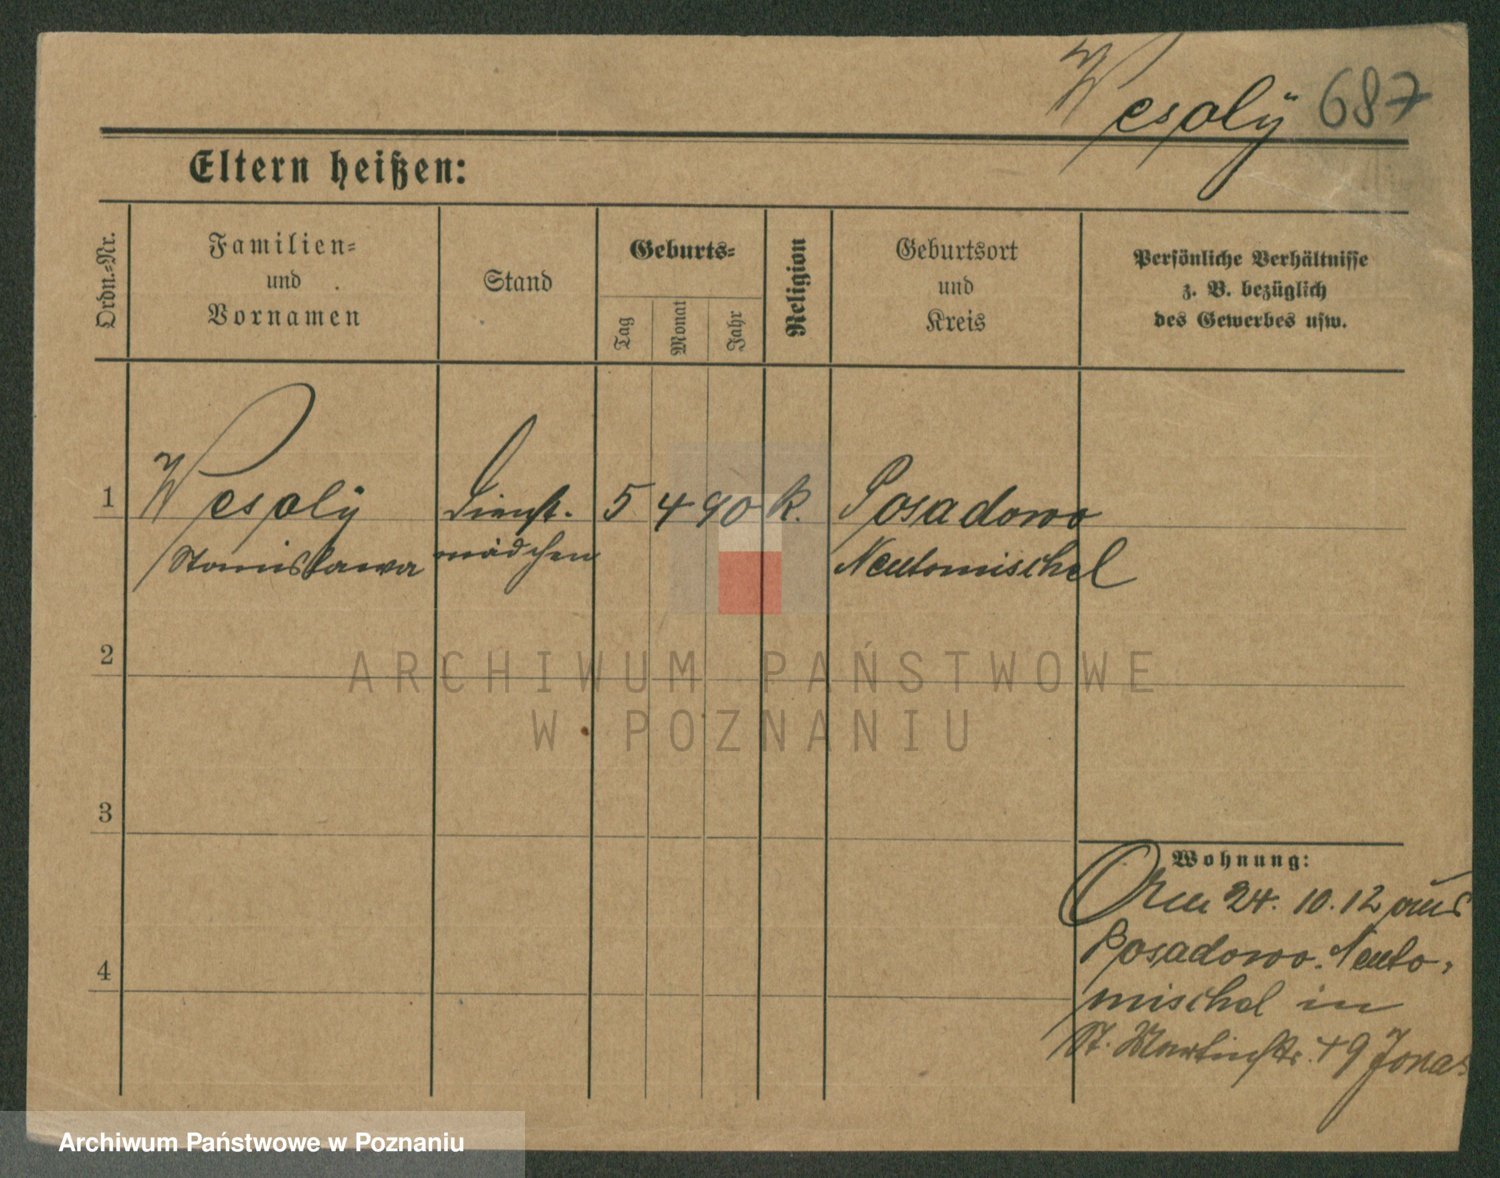 Wesolÿ 687
Eltern heißen:
Ordn.=Nr.
Familien=
und
Vornamen
Stand
Geburts=
Tag
Monat
Jahr
Religion
Geburtsort
und
Kreis
Persönliche Verhältnisse
z. B. bezüglich
des Gewerbes usw.
1 Wesolÿ Dienst- 5 4 90 K. Posadowo
Stanisława mädchen Neutomischel
2
3
4
Wohnung:
24. 10. 12 aus
Posadowo. Neuto-
mischel in
St. Martinstr. 49 Jonas
ARCHIWUM PAŃSTWOWE
W POZNANIU
Archiwum Państwowe w Poznaniu